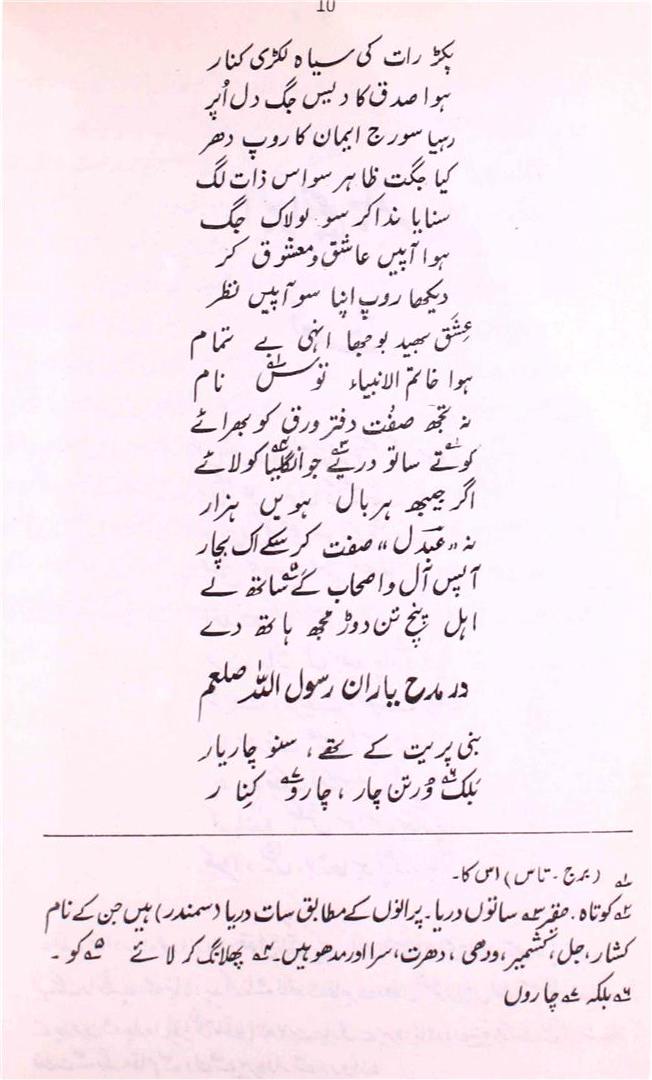 10
پکڑ رات کی سیاہ لکڑی کنار
ہوا صدق کا دیس جگ دل اُپر
رہیا سورج ایمان کا روپ دھر
کیا جگت ظاہر سو اس ذات لگ
سنایا ندا کر سو لولاک جگ
ہوا آپیں عاشق و معشوق کر
دیکھا روپ اپنا سو آپیں نظر
عِشق بھید بوجھا انہی بے تمام
ہوا خاتم الانبیاء توں نام
نہ تجھ صفت دفتر ورق کو بھرائے
کوتے ساتو دریے جو انگلیا کو لائے
اگر جیبھ ہر بال ہویں ہزار
نہ "عبدل" صفت کر سکے اک بچار
آپس آل و اصحاب کے ساتھ لے
اہل پنج تن دوڑ مجھ ہاتھ دے
در مدح یاران رسول اللہ صلعم
بنی پریت کے تھے، سنو چار یار
بلک وُرتن چار، چارو کِنار
۱؎ (برج۔ تاس) اس کا۔
۲؎ کوتاہ۔ حقر ۳؎ ساتوں دریا۔ پرانوں کے مطابق سات دریا (سمندر) ہیں جن کے نام
کشار، جل، کشمیر، ودھی، دھرت، سرا اور مدھو ہیں۔ ۴؎ پھلانگ کر لائے ۵؎ کو۔
۶؎ بلکہ ۷؎ چاروں